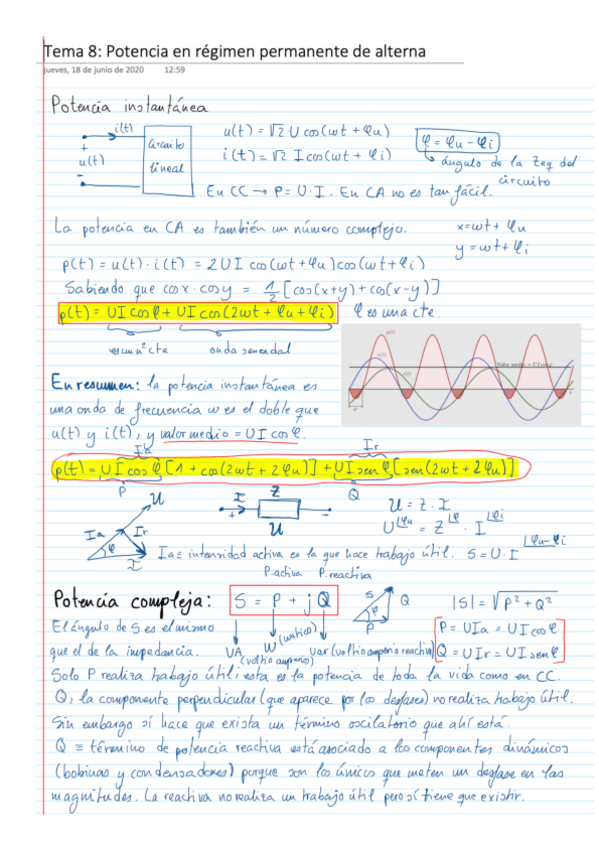 Tema 8: Potencia en régimen permanente de alterna
jueves, 18 de junio de 2020 12:59
Potencia instantánea
i(t)
+
u(t)
-
Circuito
lineal
u(t) = √2 U cos(wt + φu)
i(t) = √2 I cos(wt + φi)
φ = φu - φi
ángulo de la Zeq del
circuito
En CC → P = U·I. En CA no es tan fácil.
La potencia en CA es también un número complejo.
x = wt + φu
y = wt + φi
p(t) = u(t)·i(t) = 2UI cos(wt + φu) cos(wt + φi)
Sabiendo que cosx·cosy = 1/2 [cos(x+y) + cos(x-y)]
p(t) = UI cosφ + UI cos(2wt + φu + φi)
φ es una cte.
es un nº cte
onda senoidal
En resumen: la potencia instantánea es
una onda de frecuencia w es el doble que
u(t) y i(t), y valor medio = UI cosφ.
Ia
Ir
p(t) = UI cosφ [1 + cos(2wt + 2φu)] + UI senφ [sen(2wt + 2φu)]
P
Q
U
Ia
Ir
φ
I
I
Z
+
-
U
U = Z · I
U∠φu = Z∠φ · I∠φi
Ia ≡ intensidad activa es la que hace trabajo útil. S = U·I ∠φu-φi
P.activa P.reactiva
Potencia compleja:
S = P + jQ
S
Q
φ
P
|S| = √P² + Q²
El ángulo de S es el mismo
que el de la impedancia.
VA
(voltio amperio)
W (watios)
var (voltio amperio reactivo)
P = UIa = UI cosφ
Q = UIr = UI senφ
Solo P realiza trabajo útil; esta es la potencia de toda la vida como en CC.
Q, la componente perpendicular (que aparece por los desfases) no realiza trabajo útil.
Sin embargo sí hace que exista un término oscilatorio que ahí está.
Q ≡ término de potencia reactiva está asociado a los componentes dinámicos
(bobinas y condensadores) porque son los únicos que meten un desfase en las
magnitudes. La reactiva no realiza un trabajo útil pero sí tiene que existir.